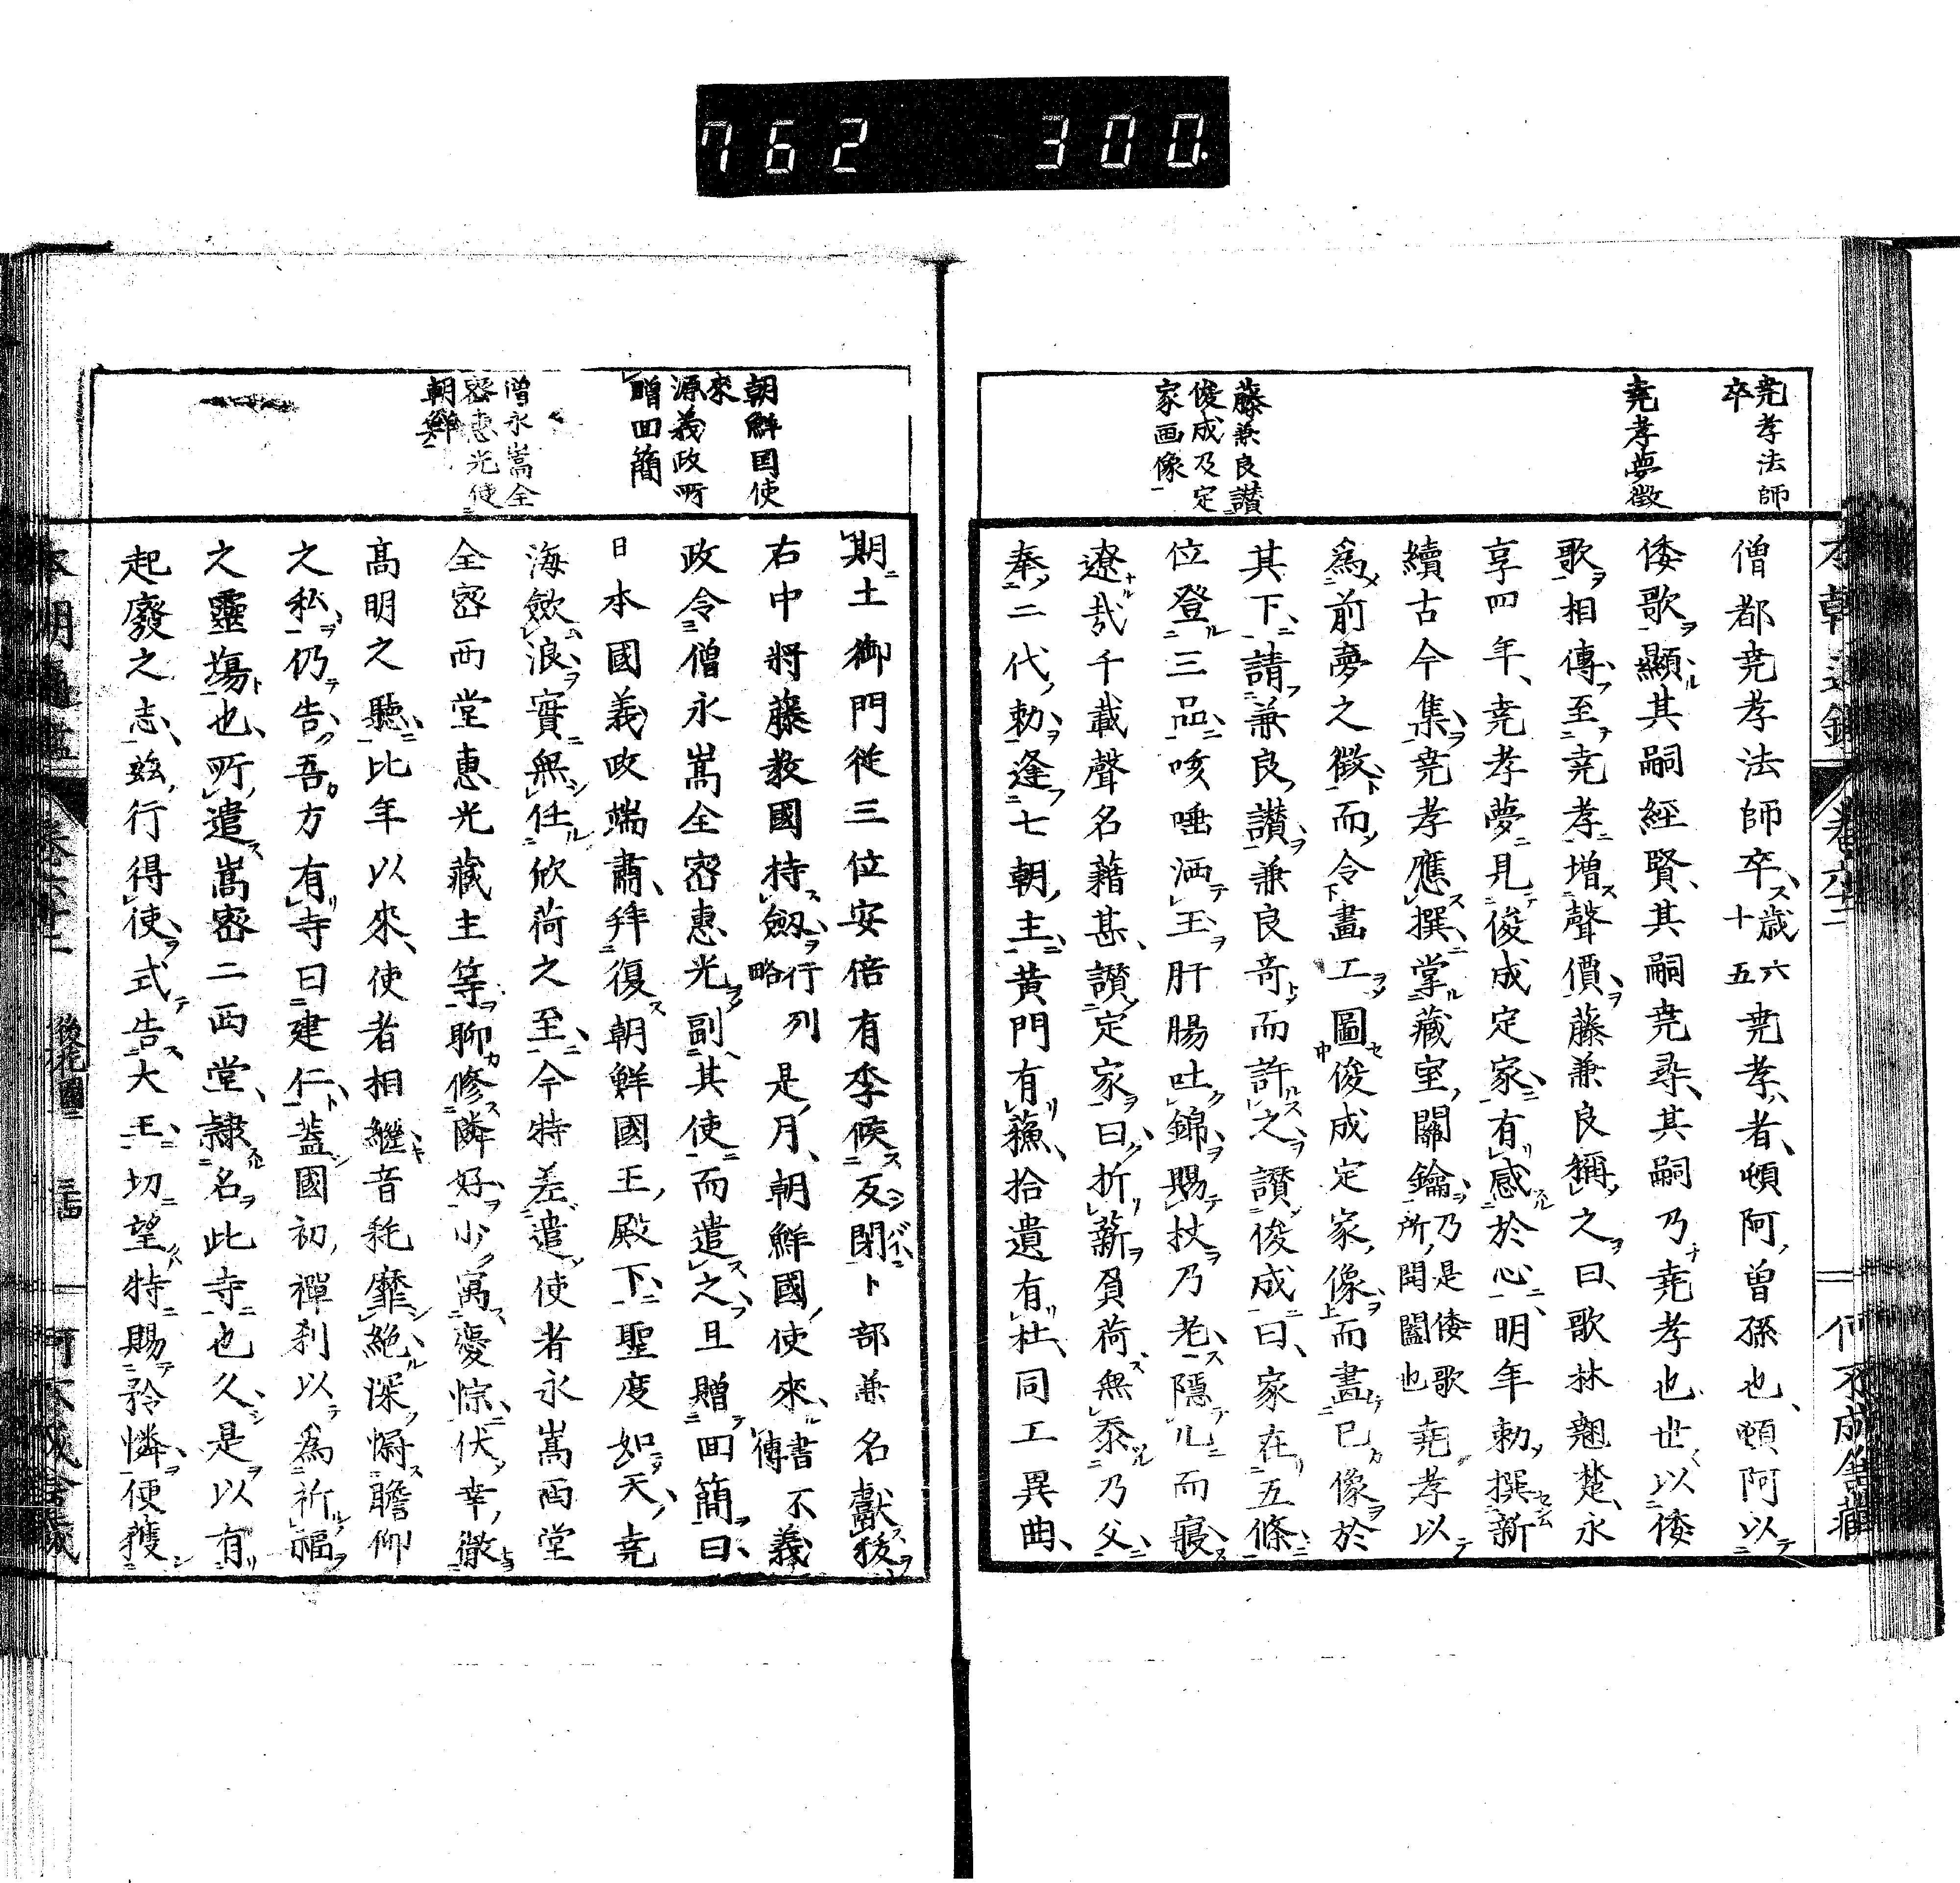 762 300
堯孝法師
卒
堯孝夢徴
藤兼良讃
俊成及定
家画像
僧都堯孝法師卒歳六十五堯孝者頓阿曽孫也頓阿以
倭歌顯其嗣經賢其嗣堯尋其嗣乃堯孝也世以倭
歌相傳至堯孝増聲價藤兼良稱之曰歌林翹楚永
享四年堯孝夢見俊成定家有感於心明年勅撰新
續古今集堯孝應撰掌藏室關鑰乃是倭歌所開闔也堯孝以
爲前夢之徴而令畫工圖俊成定家像而畫已像於
其下請兼良讃兼良竒而許之讃俊成曰家在五條
位登三品咳唾洒玉肝腸吐錦賜杖乃老隱几而寢
遼哉千載聲名藉甚讃定家曰折薪負荷無忝乃父
奉二代勅逢七朝主黄門有蘓拾遺有杜同工異曲
朝鮮国使
來
源義政所
贈回簡
僧永嵩全
密惠光使
朝鮮
期土御門從三位安倍有季候反閇卜部兼名獻祓
右中將藤教國持劔行列略是月朝鮮國使來書不傳義
政令僧永嵩全密惠光副其使而遣之且贈回簡曰
日本國義政端肅拜復朝鮮國王殿下聖度如天堯
海歛浪實無任欣荷之至今特差遣使者永嵩西堂
全密西堂惠光藏主等聊修隣好少寓憂悰伏幸徹
髙明之聽比年以來使者相繼音耗靡絶深慰瞻仰
之私仍告吾方有寺曰建仁蓋國初禪刹以爲祈福
之靈塲也所遣嵩密二西堂隷名此寺也久是以有
起廢之志玆行得使式告大王切望特賜矜憐便獲